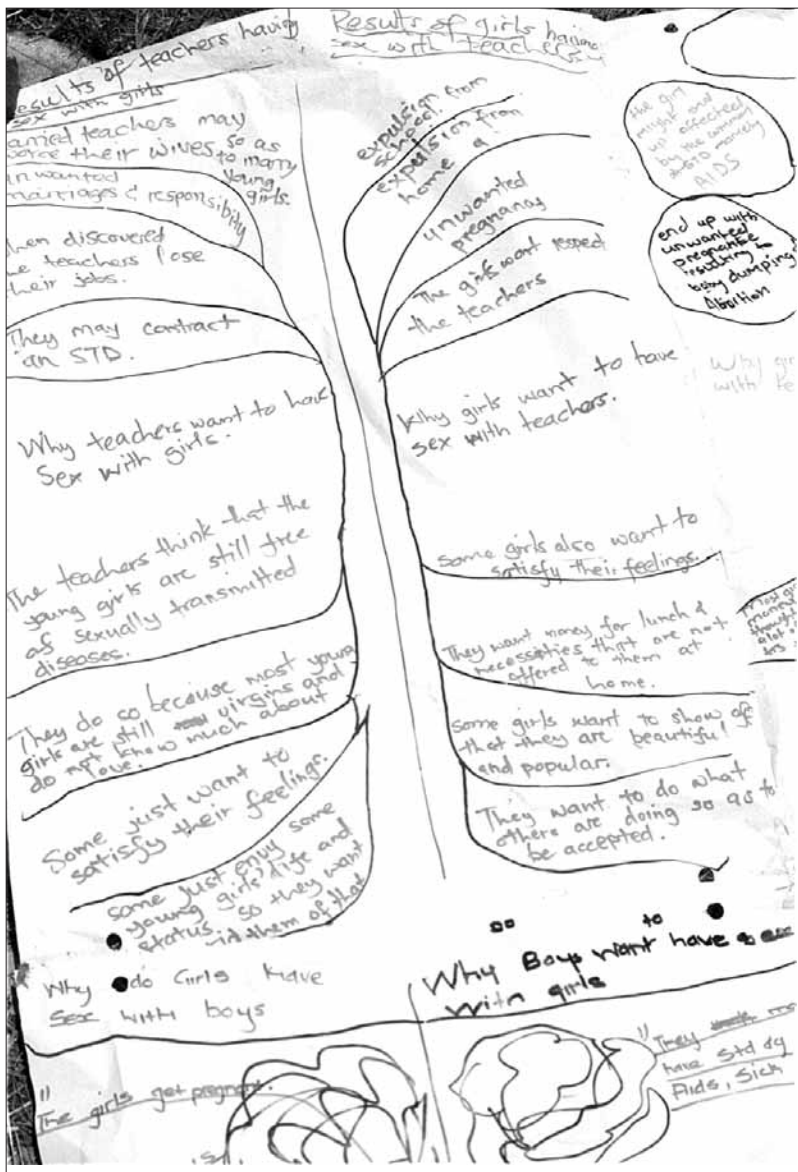 Results of teachers having
sex with girls
married teachers may
divorce their wives so as
to marry
young
girls.
unwanted
marriages & responsibity
When discovered
the teachers lose
their jobs.
They may contract
an STD.
Why teachers want to have
sex with girls.
The teachers think that the
young girls are still free
of sexually transmitted
diseases.
They do so because most young
girls are still virgins and
do not know much about
love.
Some just want to
satisfy their feelings.
some just envy some
young girls' life and
status so they want
them of that
Results of girls having
sex with teachers
expulsion from
school.
expulsion from
home
unwanted
pregnancy
The girls wont respect
the teachers
Why girls want to have
sex with teachers.
Some girls also want to
satisfy their feelings...
They want money for lunch &
necessities that are not
offered to them at
home.
Some girls want to show off
that they are beautiful
and popular.
They want to do what
others are doing so as to
be accepted.
the girl
might end
up affected
by the
AIDS
end up with
unwanted
resulting to
dumping
Why
with
Why do Girls have
Sex with boys
Why Boys want to have
with girls
11
The girls get pregnant.
11
They
have Std
Aids, Sick